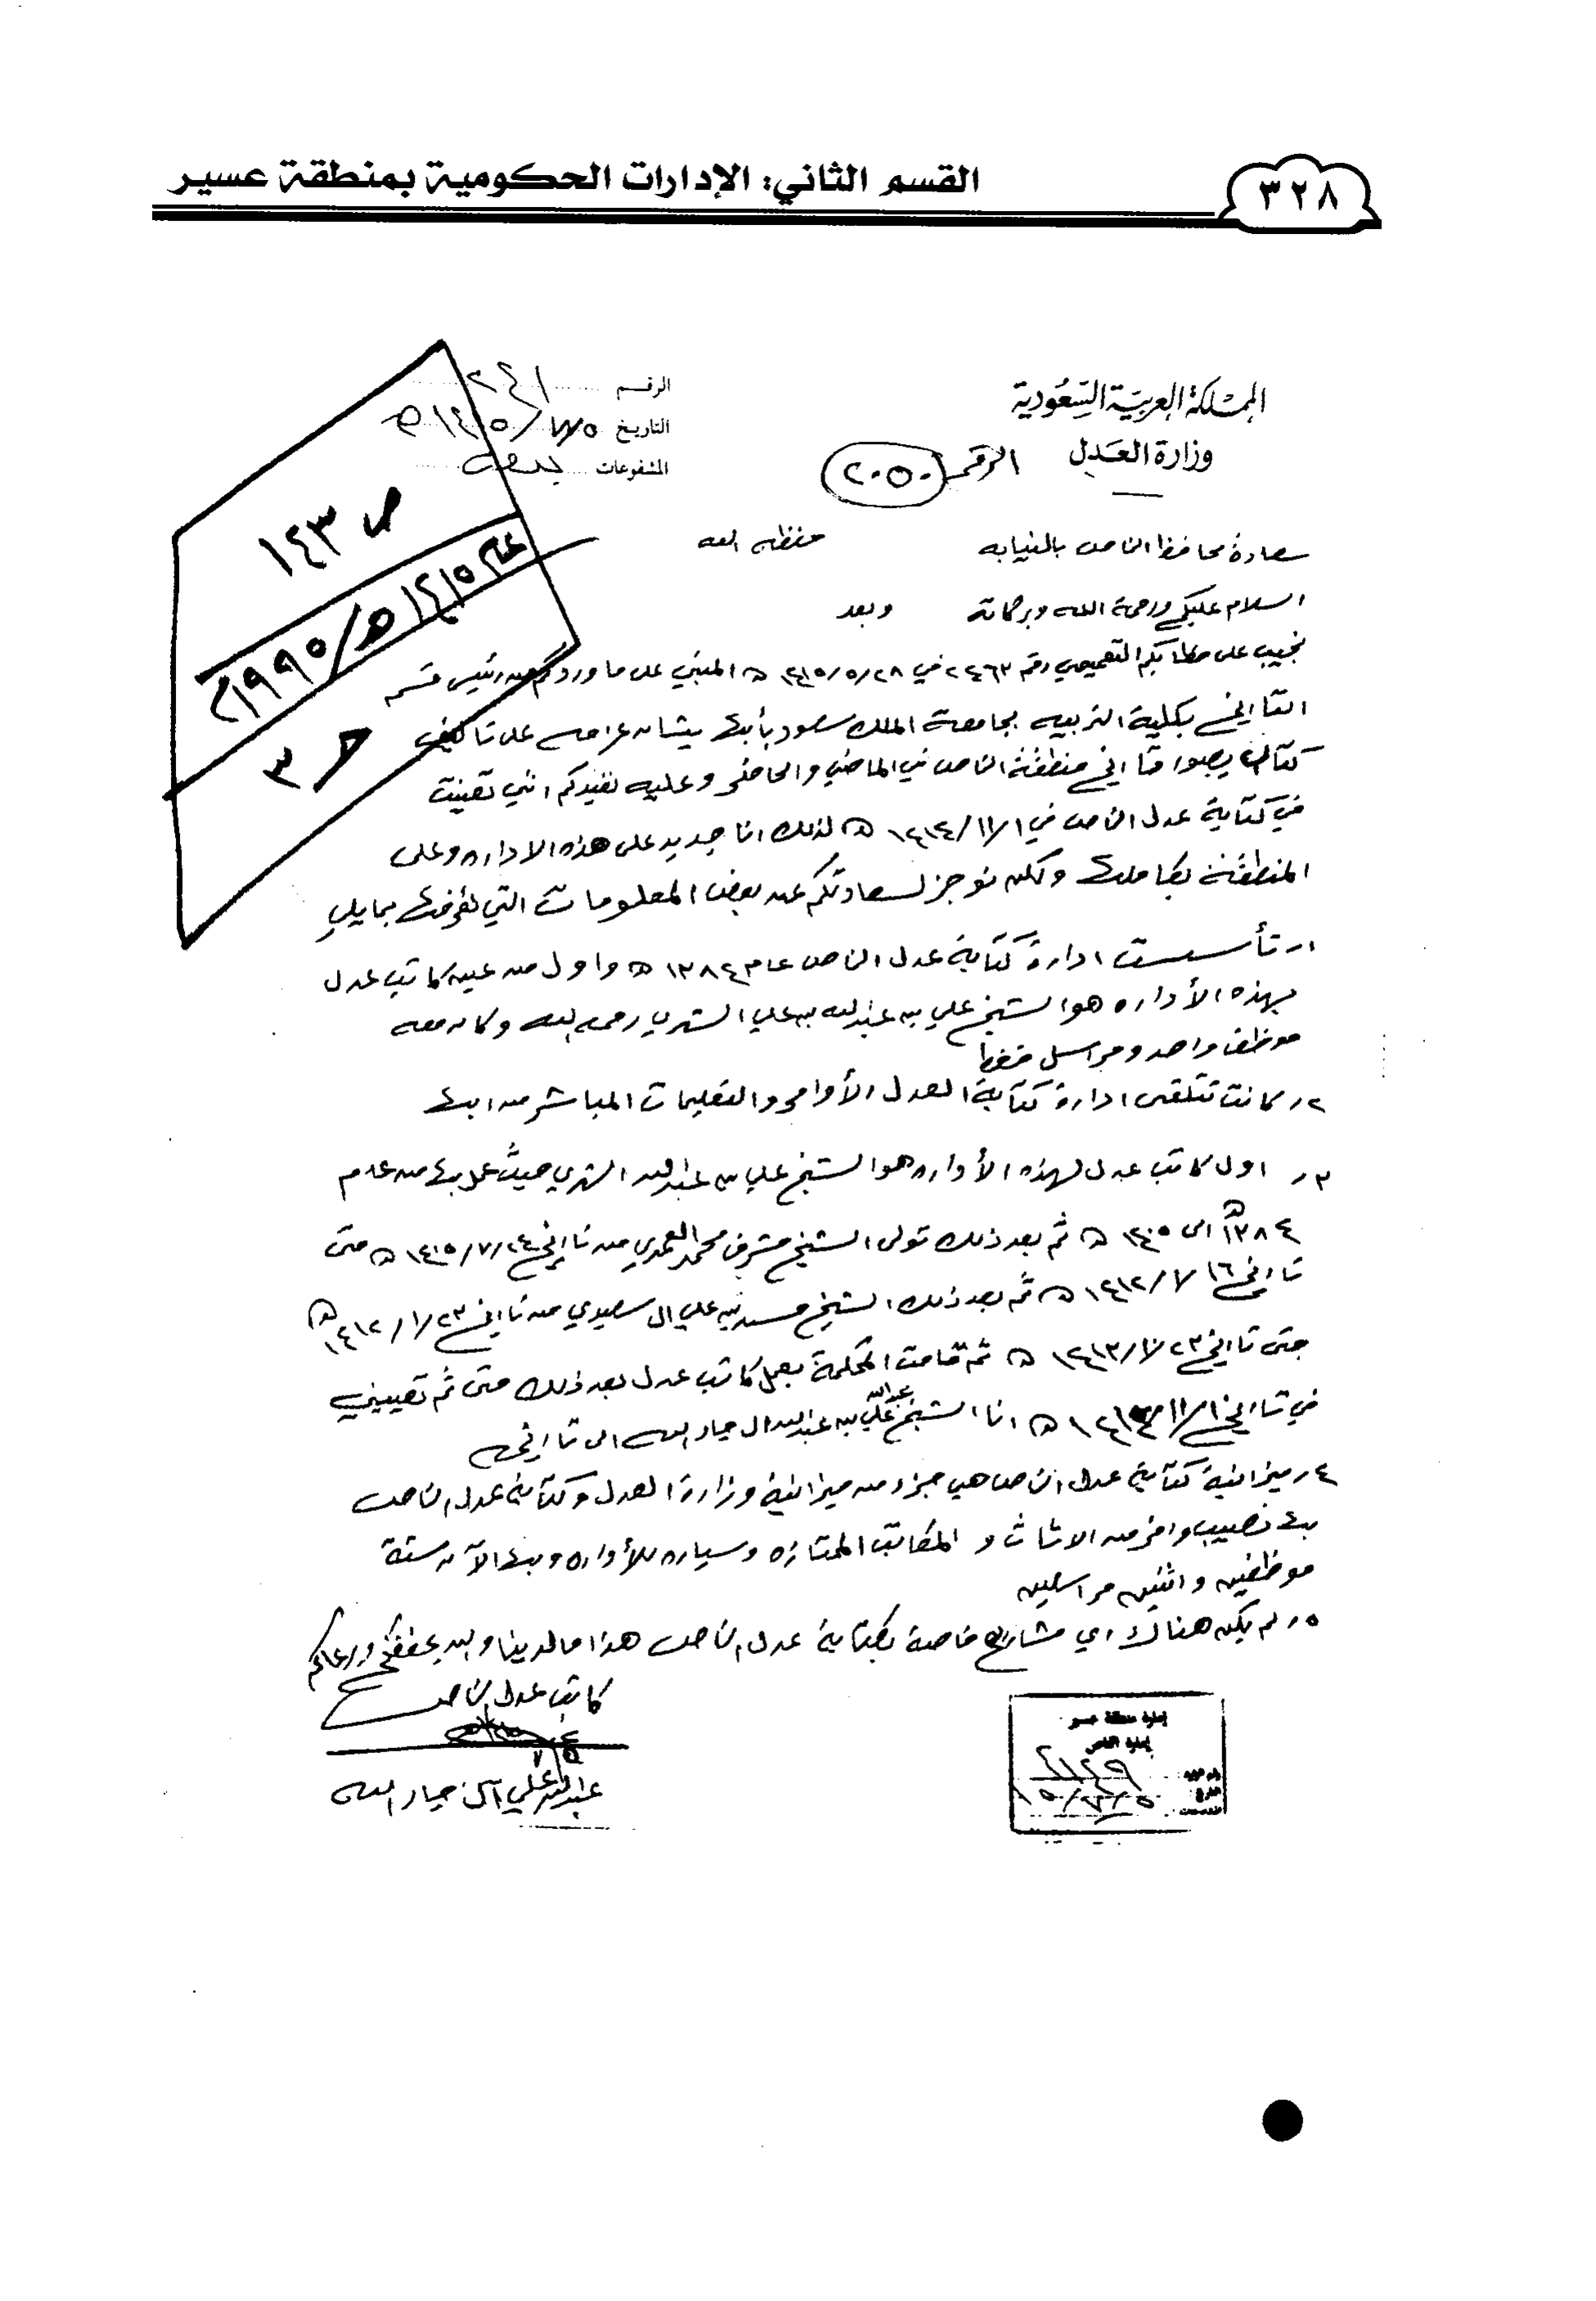 ٣٢٨
القسم الثاني: الإدارات الحكومية بمنطقة عسير
المملكة العربية السعودية
وزارة العدل
الرقم ٢٠٥٠
الرقم ٢٤١
التاريخ ٧/٥/ ١٤١٥هـ
المشفوعات بدون
ص ١٤٣
عام ١٤١٥هـ/١٩٩٥م
حـ ٣
سعادة محافظ النماص بالنيابه حفظه الله
السلام عليكم ورحمة الله وبركاته وبعد
نجيب على خطابكم التعميمي رقم ٢٤٦٣ في ١٤١٥/٥/٢٨ هـ المبني على ما وردكم من رئيس قسم
التاريخ بكلية التربيه بجامعة الملك سعود بأبها بشان عزمه على تاليف
كتاب تاريخ منطقة النماص في الماضي والحاضر وعليه نفيدكم انني تعينت
في كتابة عدل النماص في ١١/١/ ١٤١٤ هـ لذلك انا جديد على هذه الاداره وعلى
المنطقة بكاملها ولكن نوجز لسعادتكم عن بعض المعلومات التي نعرفها بمايلي
١ـ تأسست ادارة كتابة عدل النماص عام ١٣٨٤ هـ واول من عين كاتب عدل
بهذه الأداره هو الشيخ علي بن عبدالله بن علي الشهري رحمه الله وكان معه
موظف واحد ومراسل فقط
٢ـ كانت تتلقى ادارة كتابة العدل الأوامر والتعليمات المباشر من ابها
٣ـ اول كاتب عدل لهذه الأداره هو الشيخ علي بن عبدالله الشهري حيث عمل بها من عام
١٣٨٤هـ الى ١٤٠٥ هـ ثم بعد ذلك تولى الشيخ مشرف محمد العمري من تاريخ ٧/٢٤/ ١٤٠٥ هـ حتى
تاريخ ١٦/ ٧/ ١٤١٢ هـ ثم بعد ذلك الشيخ بن علي ال من تاريخ ٢٣/ ٧/ ١٤١٢هـ
حتى تاريخ ٢٣/ ٧/ ١٤١٣ هـ ثم قامت المحكمة بعمل كاتب عدل بعد ذلك حتى تم تعييني
في تاريخ ١١/١/ هـ انا الشيخ عبدالله علي بن عبدالله ال جار الله الى تاريخه
٤ـ ميزانية كتابة عدل النماص هي جزء من ميزانية وزارة العدل وكتابة عدل النماص
بها نصيب وافر من الاثاث و المكاتب الممتازه وسياره للأداره وبها الآن ستة
موظفين واثنين مراسلين
٥ـ لم يكن هناك اي مشاريع خاصة بكتابة عدل النماص هذا مالدينا والله يحفظكم ويرعاكم
كاتب عدل النماص
عبدالله علي آل جار الله
إمارة منطقة عسير
إمارة النماص
التاريخ